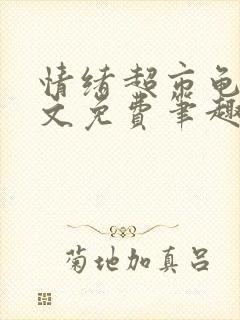 情绪超市龟
文免费笔趣
菊地加真吕